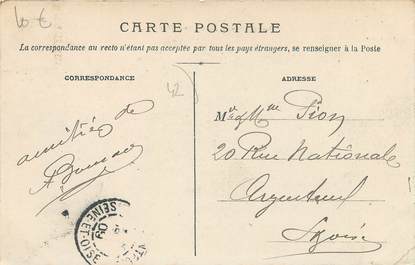 10 €
CARTE POSTALE
La correspondance au recto n'étant pas acceptée par tous les pays étrangers, se renseigner à la Poste
CORRESPONDANCE
ADRESSE
42
amitiés de
Mr & Mme Pion
20 Rue Nationale
Argenteuil
S & Oise
SEINE-ET-OISE
09